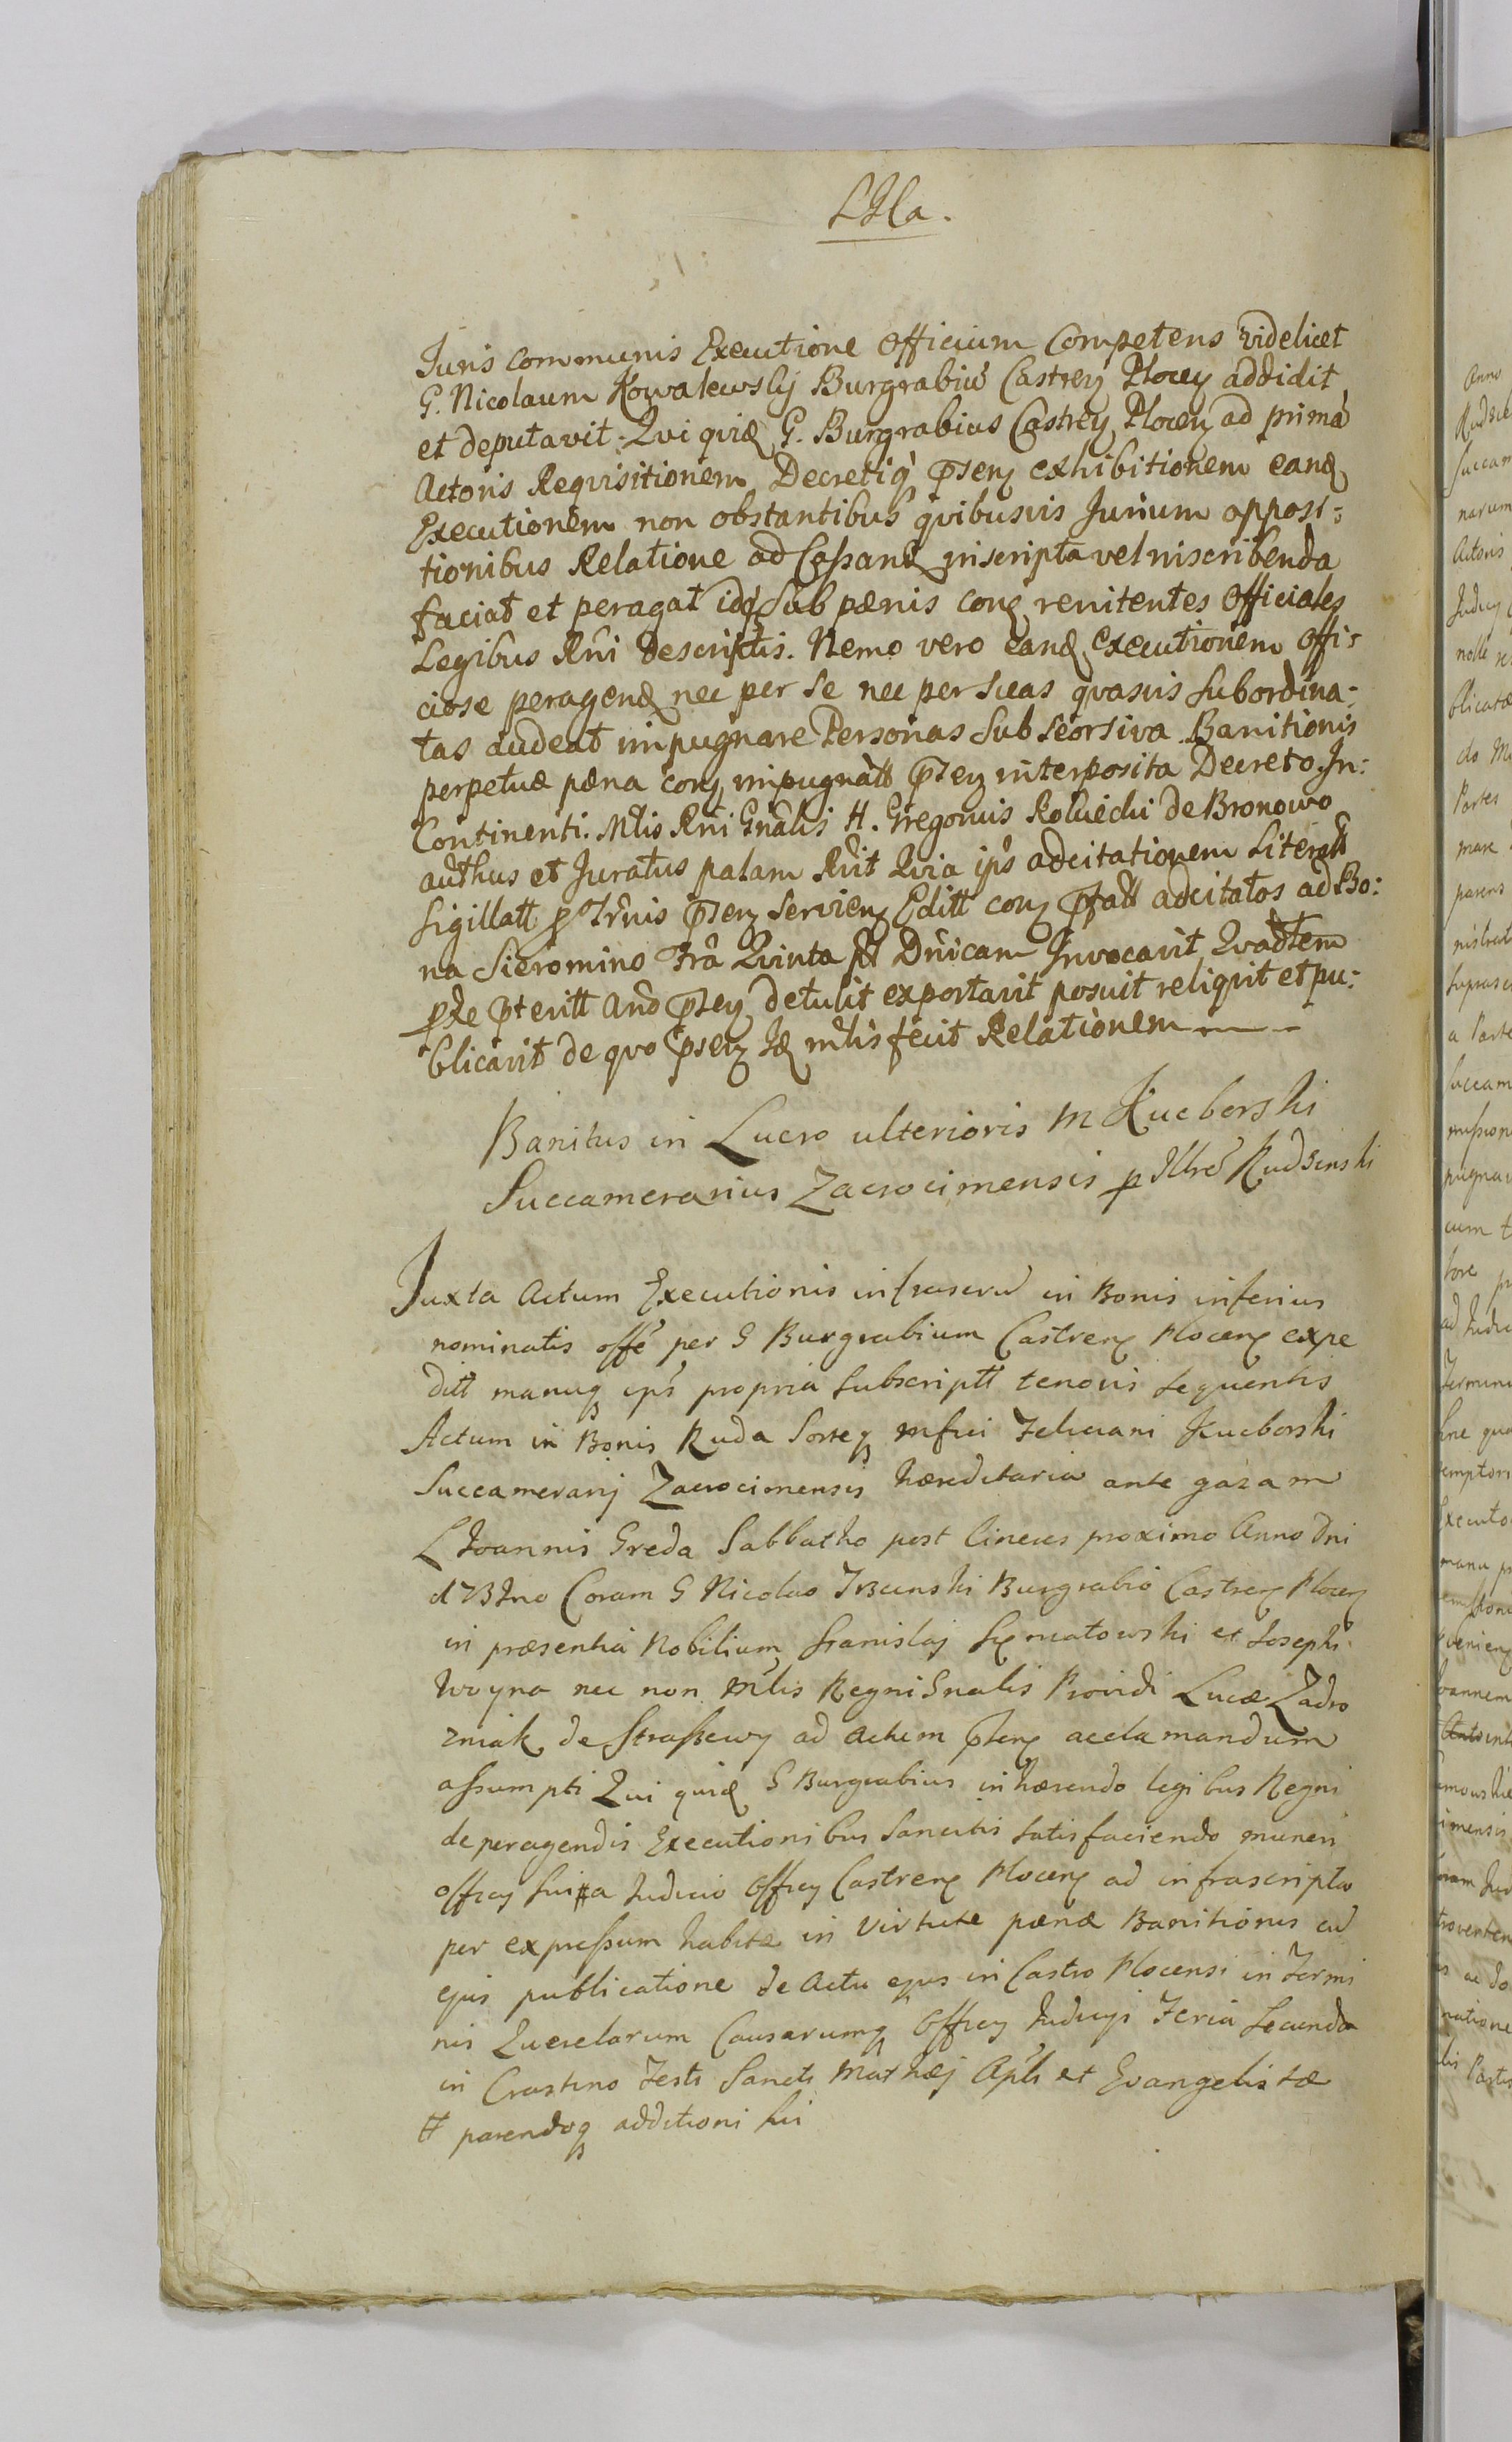 Juris communis Executione Officium Competens videlicet
G. Nicolaum Kowalewskij Burgrabiū Castreñ Ploceñ addidit
et deputavit. Qui quid G. Burgrabius Castreñ Ploceñ ad primā
Actoris Requisitionem Decretiq̃ p̃sen exhibitionem eand
Executionem non obstantibus quibusvis Jurium opposi:
tionibus Relatione ad Cassand inscripta vel inscribenda
faciat et peragat idq sub pænis con renitentes Officiales
Legibus Rñi descriptis. Nemo vero eand executionem offi:
ciose peragend nec per se nec per suas quasvis subordina:
tas audeat impugnare Personas sub seorsiva Banitionis
perpetuæ pæna con impugnatt p̃sen interposita Decreto In:
Continenti. Mlis Rñi Gñalis H. Gregorius de Bronowo
authus et Juratus palam Rñit Quia ip̃s adcitationem Literatt
Sigillatt p Tr̃nis p̃sen Servien Editt con p̃fatt adcitatos ad Bo:
na Sieromino Fr̃a Quinta ptt Dñicam Invocavit Quadtem
p̃teritt Anō p̃sen detulit exportavit posuit reliquit et pu:
blicavit de quo p̃sen Id mlis fecit Relationem
Banitus in Lucro ulterioris M Kucborski
Succamerarius Zacrocimensis p Kudzinski
Juxta Actum Executionis infrascrū in Bonis inferius
nominatis offē per G Burgrabium Castren Plocen expe
ditt manuq ips propria subscriptt tenoris sequentis
Actum in Bonis Ruda Sorteq mfici Feliciani Kucborski
Succamerarij Zacrocimensis hæreditaria ante gazam
L Joannis Greda Sabbatho post Cineres proximo Anno Dni
Coram G Nicolao Burgrabio Castren Plocen
in præsentia Nobilium Stanislaj et Josephi
Woyna nec non Mlis Regni Gnalis Providi Lucæ Zadro
zniak de Strassewy ad Actum p̃sen acclamandum
assumpti Qui quid G Burgrabius inhærendo legibus Regni
de peragendis Executionibus sancitis satisfaciendo muneri
officy sui a Judicio Officy Castren Plocen ad infrascripta
per expressum habitæ in virtute pænæ Banitionis cū
ejus publicatione de Actu ejus in Castro Plocensi in Termi
nis Querelarum Causarumq Officy Judicyi Feria Secunda
in Crastino Festi Sancti Mathæj Apli et Evangelistæ
tt parendoq additioni sui